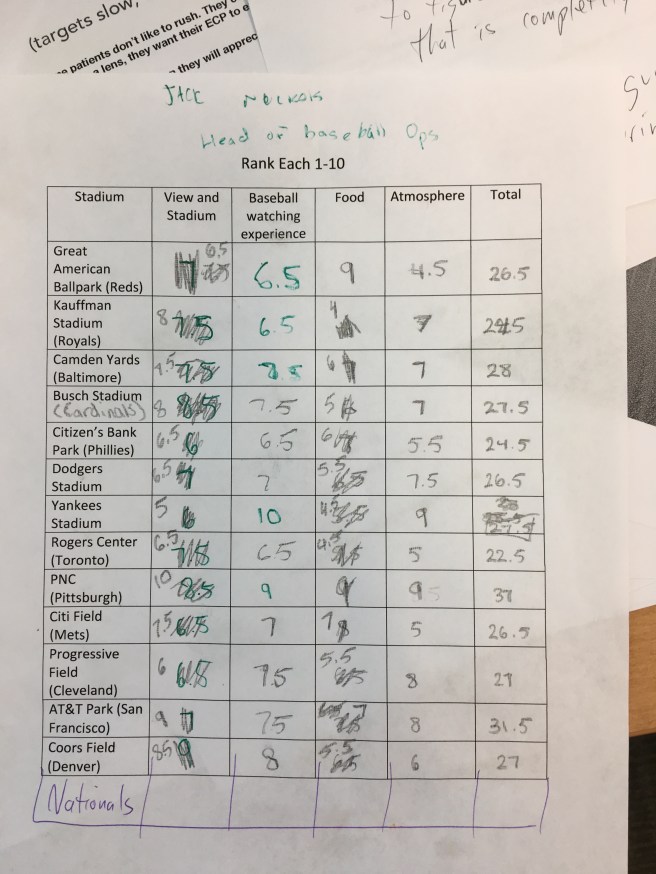 (targets slow,
patients don't like to rush. They
lens, they want their ECP to e
they will apprec
to figu
that is complet
JACK
Head of baseball Ops
Rank Each 1-10
Stadium View and Stadium Baseball watching experience Food Atmosphere Total
Great American Ballpark (Reds) 6.5 6.5 9 4.5 26.5
Kauffman Stadium (Royals) 8 6.5 4 7
Camden Yards (Baltimore) 7.5 7.5 6 7 28
Busch Stadium (Cardinals) 8 7.5 5 7 27.5
Citizen's Bank Park (Phillies) 6.5 6.5 6 5.5 24.5
Dodgers Stadium 6.5 7 5.5 7.5 26.5
Yankees Stadium 5 10 4.5 9
Rogers Center (Toronto) 6.5 6.5 4.5 5 22.5
PNC (Pittsburgh) 10 9 9 9 37
Citi Field (Mets) 7.5 7 7 5 26.5
Progressive Field (Cleveland) 6 7.5 5.5 8 27
AT&T Park (San Francisco) 9 7.5 7 8 31.5
Coors Field (Denver) 8.5 8 5.5 6 27
Nationals